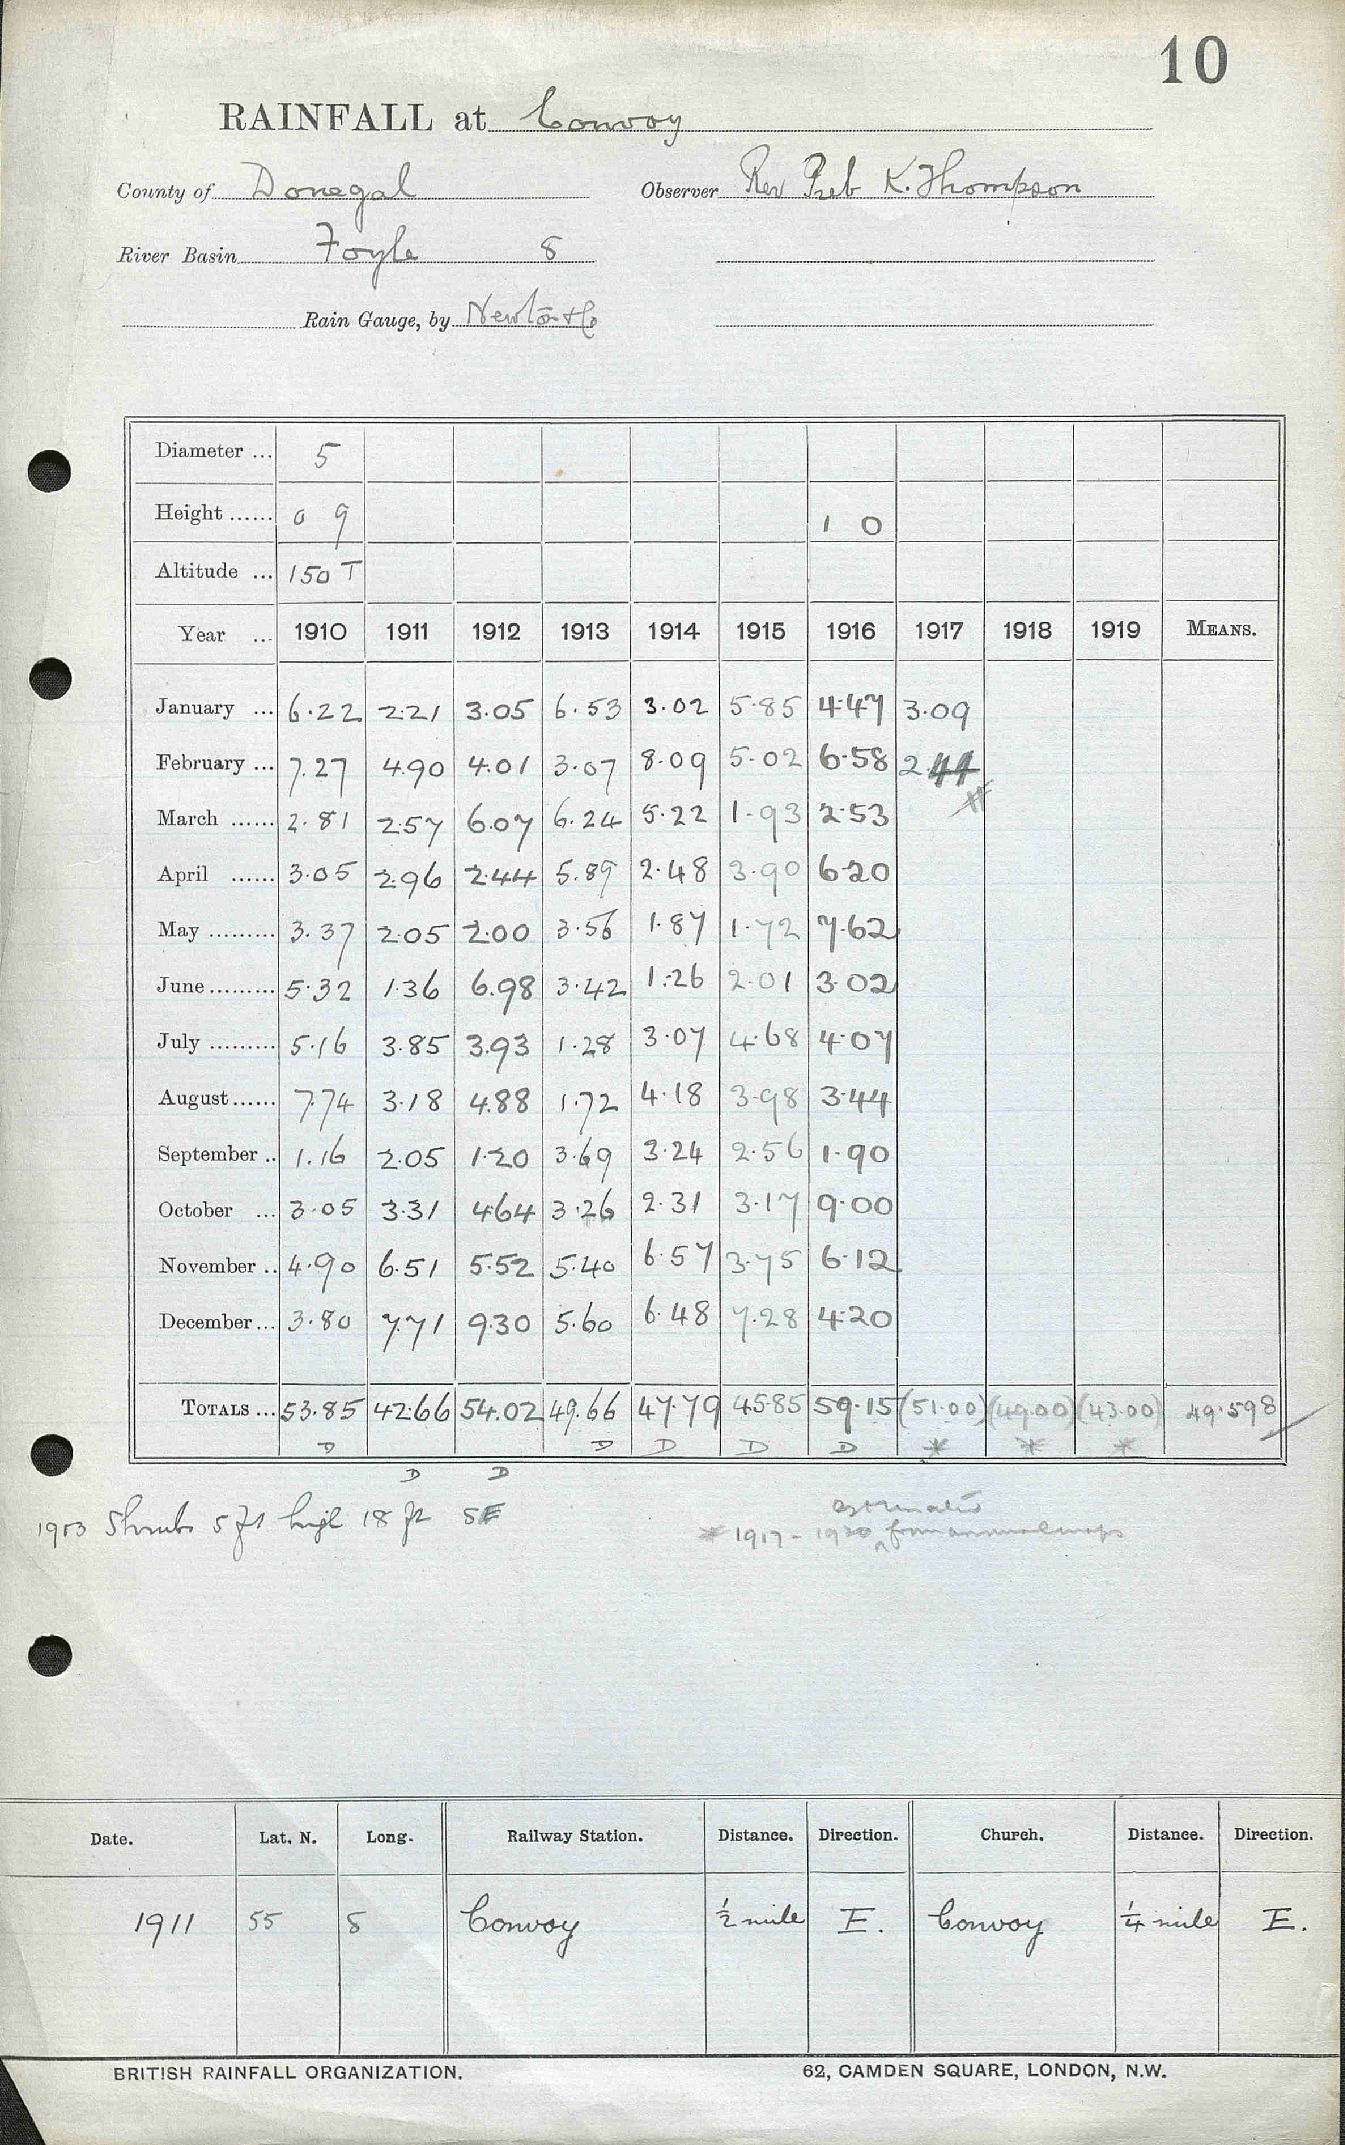 10
RAINFALL at Convoy
County of Donegal Observer Rev Preb K. Thompson
River Basin Foyle 8
Rain Gauge, by Newton & Co
Diameter ... 5
Height ...... 0 9 1 0
Altitude ... 150 T
Year ... 1910 1911 1912 1913 1914 1915 1916 1917 1918 1919 MEANS.
January ... 6.22 2.21 3.05 6.53 3.02 5.85 4.47 3.09
February ... 7.27 4.90 4.01 3.07 8.09 5.02 6.58 2.44
March ...... 2.81 2.57 6.07 6.24 5.22 1.93 2.53
April ...... 3.05 2.96 2.44 5.89 2.48 3.90 6.20
May ......... 3.37 2.05 2.00 3.56 1.87 1.72 7.62
June ......... 5.32 1.36 6.98 3.42 1.26 2.01 3.02
July ......... 5.16 3.85 3.93 1.28 3.07 4.68 4.07
August ...... 7.74 3.18 4.88 1.72 4.18 3.98 3.44
September .. 1.16 2.05 1.20 3.69 3.24 2.56 1.90
October ... 3.05 3.31 4.64 3.26 2.31 3.17 9.00
November .. 4.90 6.51 5.52 5.40 6.57 3.75 6.12
December ... 3.80 7.71 9.30 5.60 6.48 7.28 4.20
TOTALS ... 53.85 42.66 54.02 49.66 47.79 45.85 59.15 (51.00) (49.00) (43.00) 49.598
D D D D D * * *
D D
1903 Shrubs 5 ft high 18 ft SE
estimated
* 1917 - 1920 ^ from annual maps
Date. Lat. N. Long. Railway Station. Distance. Direction. Church. Distance. Direction.
1911 55 8 Convoy ½ mile E. Convoy ¼ mile E.
BRITISH RAINFALL ORGANIZATION. 62, CAMDEN SQUARE, LONDON, N.W.